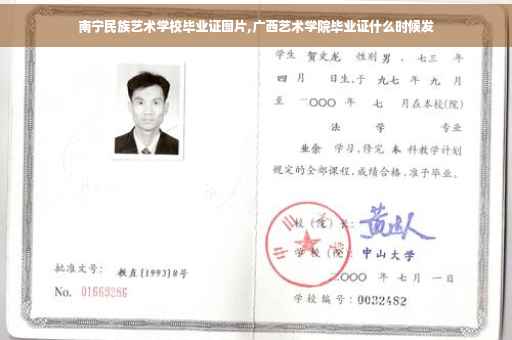 南宁民族艺术学校毕业证图片,广西艺术学院毕业证什么时候发
学生 贺文龙 性别 男，七三 年
四 月 日生，于 九七 年 九 月
至 二OOO 年 七 月在本校(院)
法 学 专业
业余 学习，修完 本 科教学计划
规定的全部课程，成绩合格，准予毕业。
校 (院) 长：
学 校 (院)： 中山大学
二OOO 年 七 月 一 日
学校编号：0032482
批准文号： 教直[1993]8号
No. 01669286